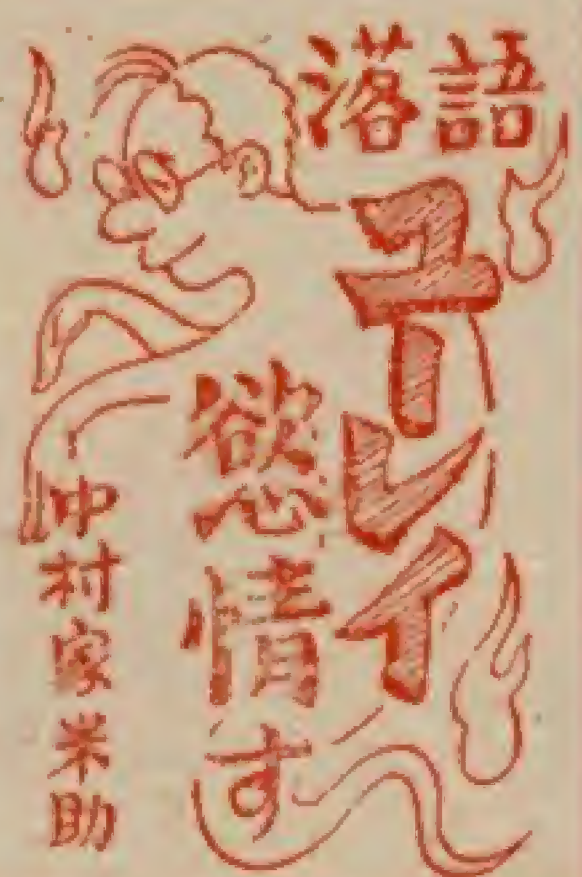 落語
ユーレイ
慾情す
中村家米助